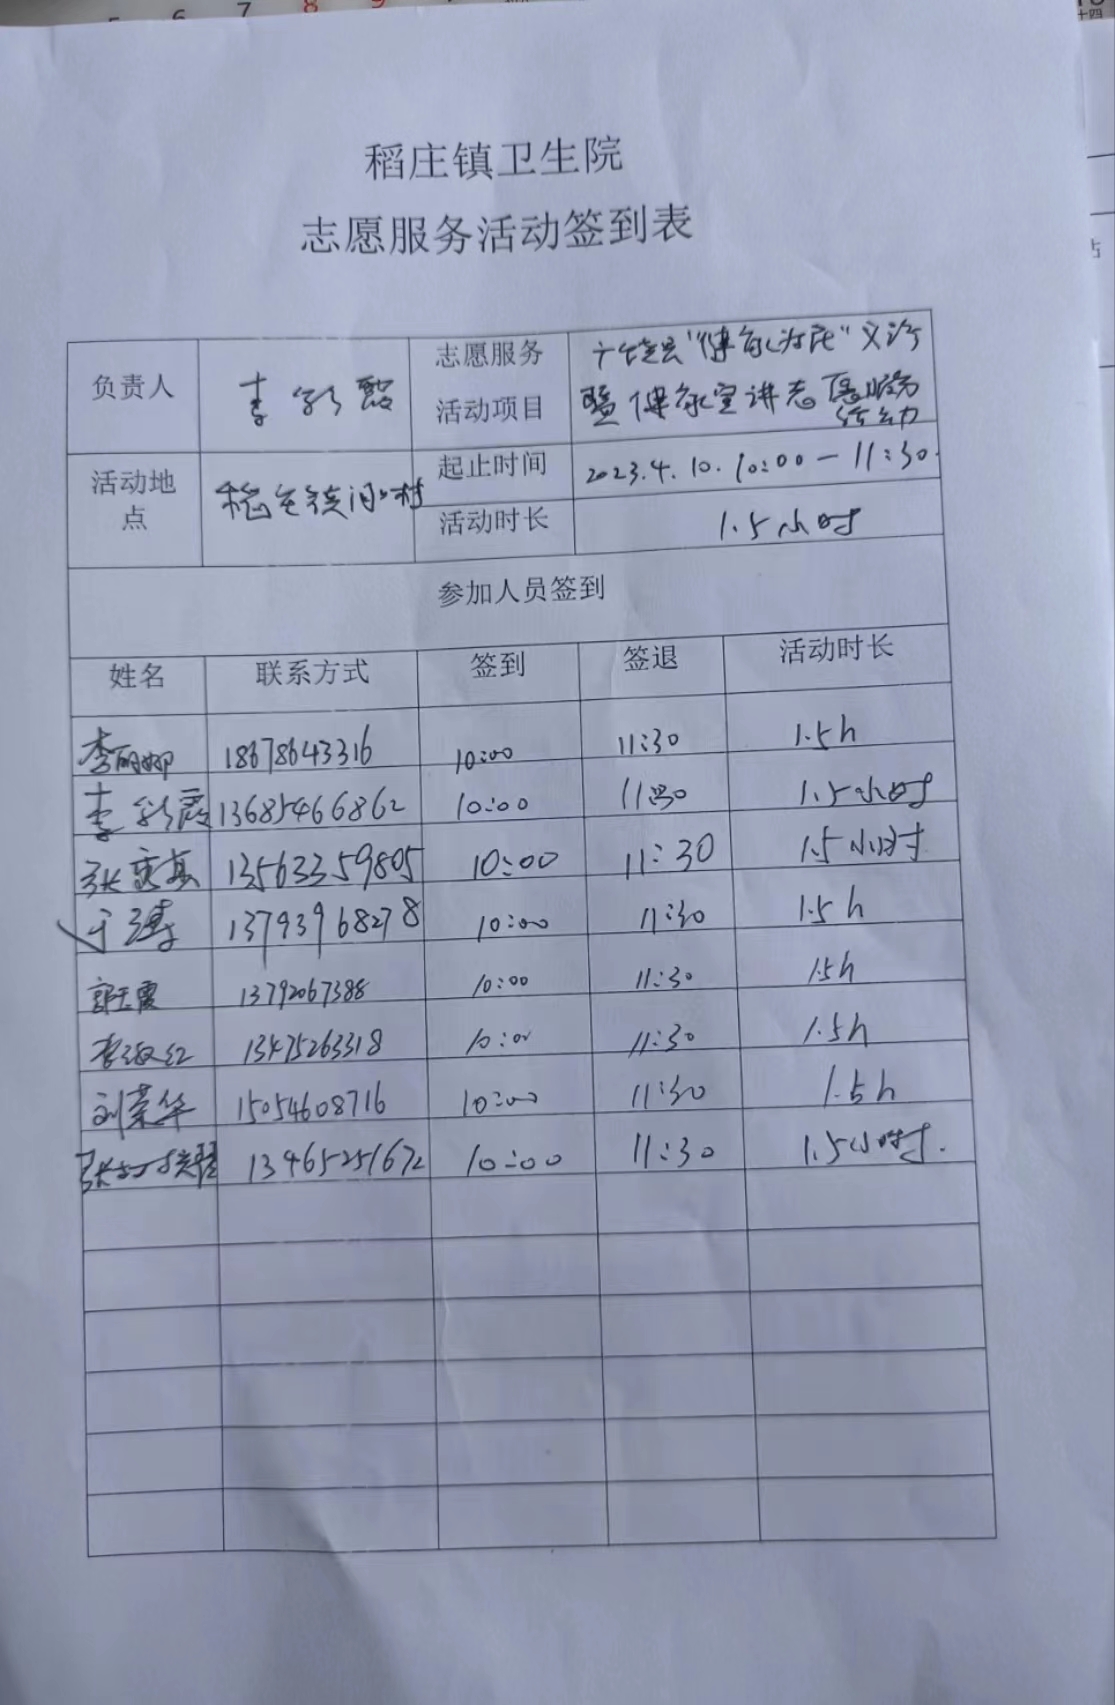 5 6 7 8 9
十四
稻庄镇卫生院
志愿服务活动签到表
负责人 李彩霞 志愿服务活动项目 广饶县"健康为民"义诊
暨健康宣讲志愿服务
行动
活动地点 稻庄镇 村 起止时间 2023.4.10.10:00-11:30.
活动时长 1.5小时
参加人员签到
姓名 联系方式 签到 签退 活动时长
李丽娜 18678643316 10:00 11:30 1.5h
李彩霞 13685466862 10:00 11:30 1.5小时
张 13563359805 10:00 11:30 1.5小时
于涛 13793968278 10:00 11:30 1.5h
郭玉霞 13792067388 10:00 11:30 1.5h
李 红 13475263318 10:00 11:30 1.5h
刘荣华 15054608716 10:00 11:30 1.5h
张 13465251672 10:00 11:30 1.5小时.